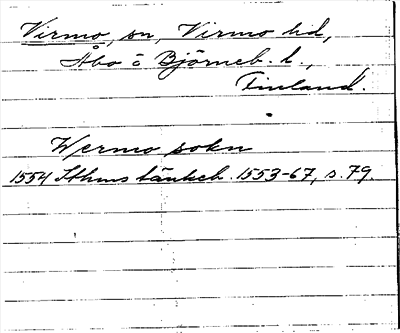 Virmo, sn, Virmo hd,
Åbo o Björneb. l.,
Finland.
Wermo sokn
1554 Sthms tänkeb. 1553-67, s. 79.